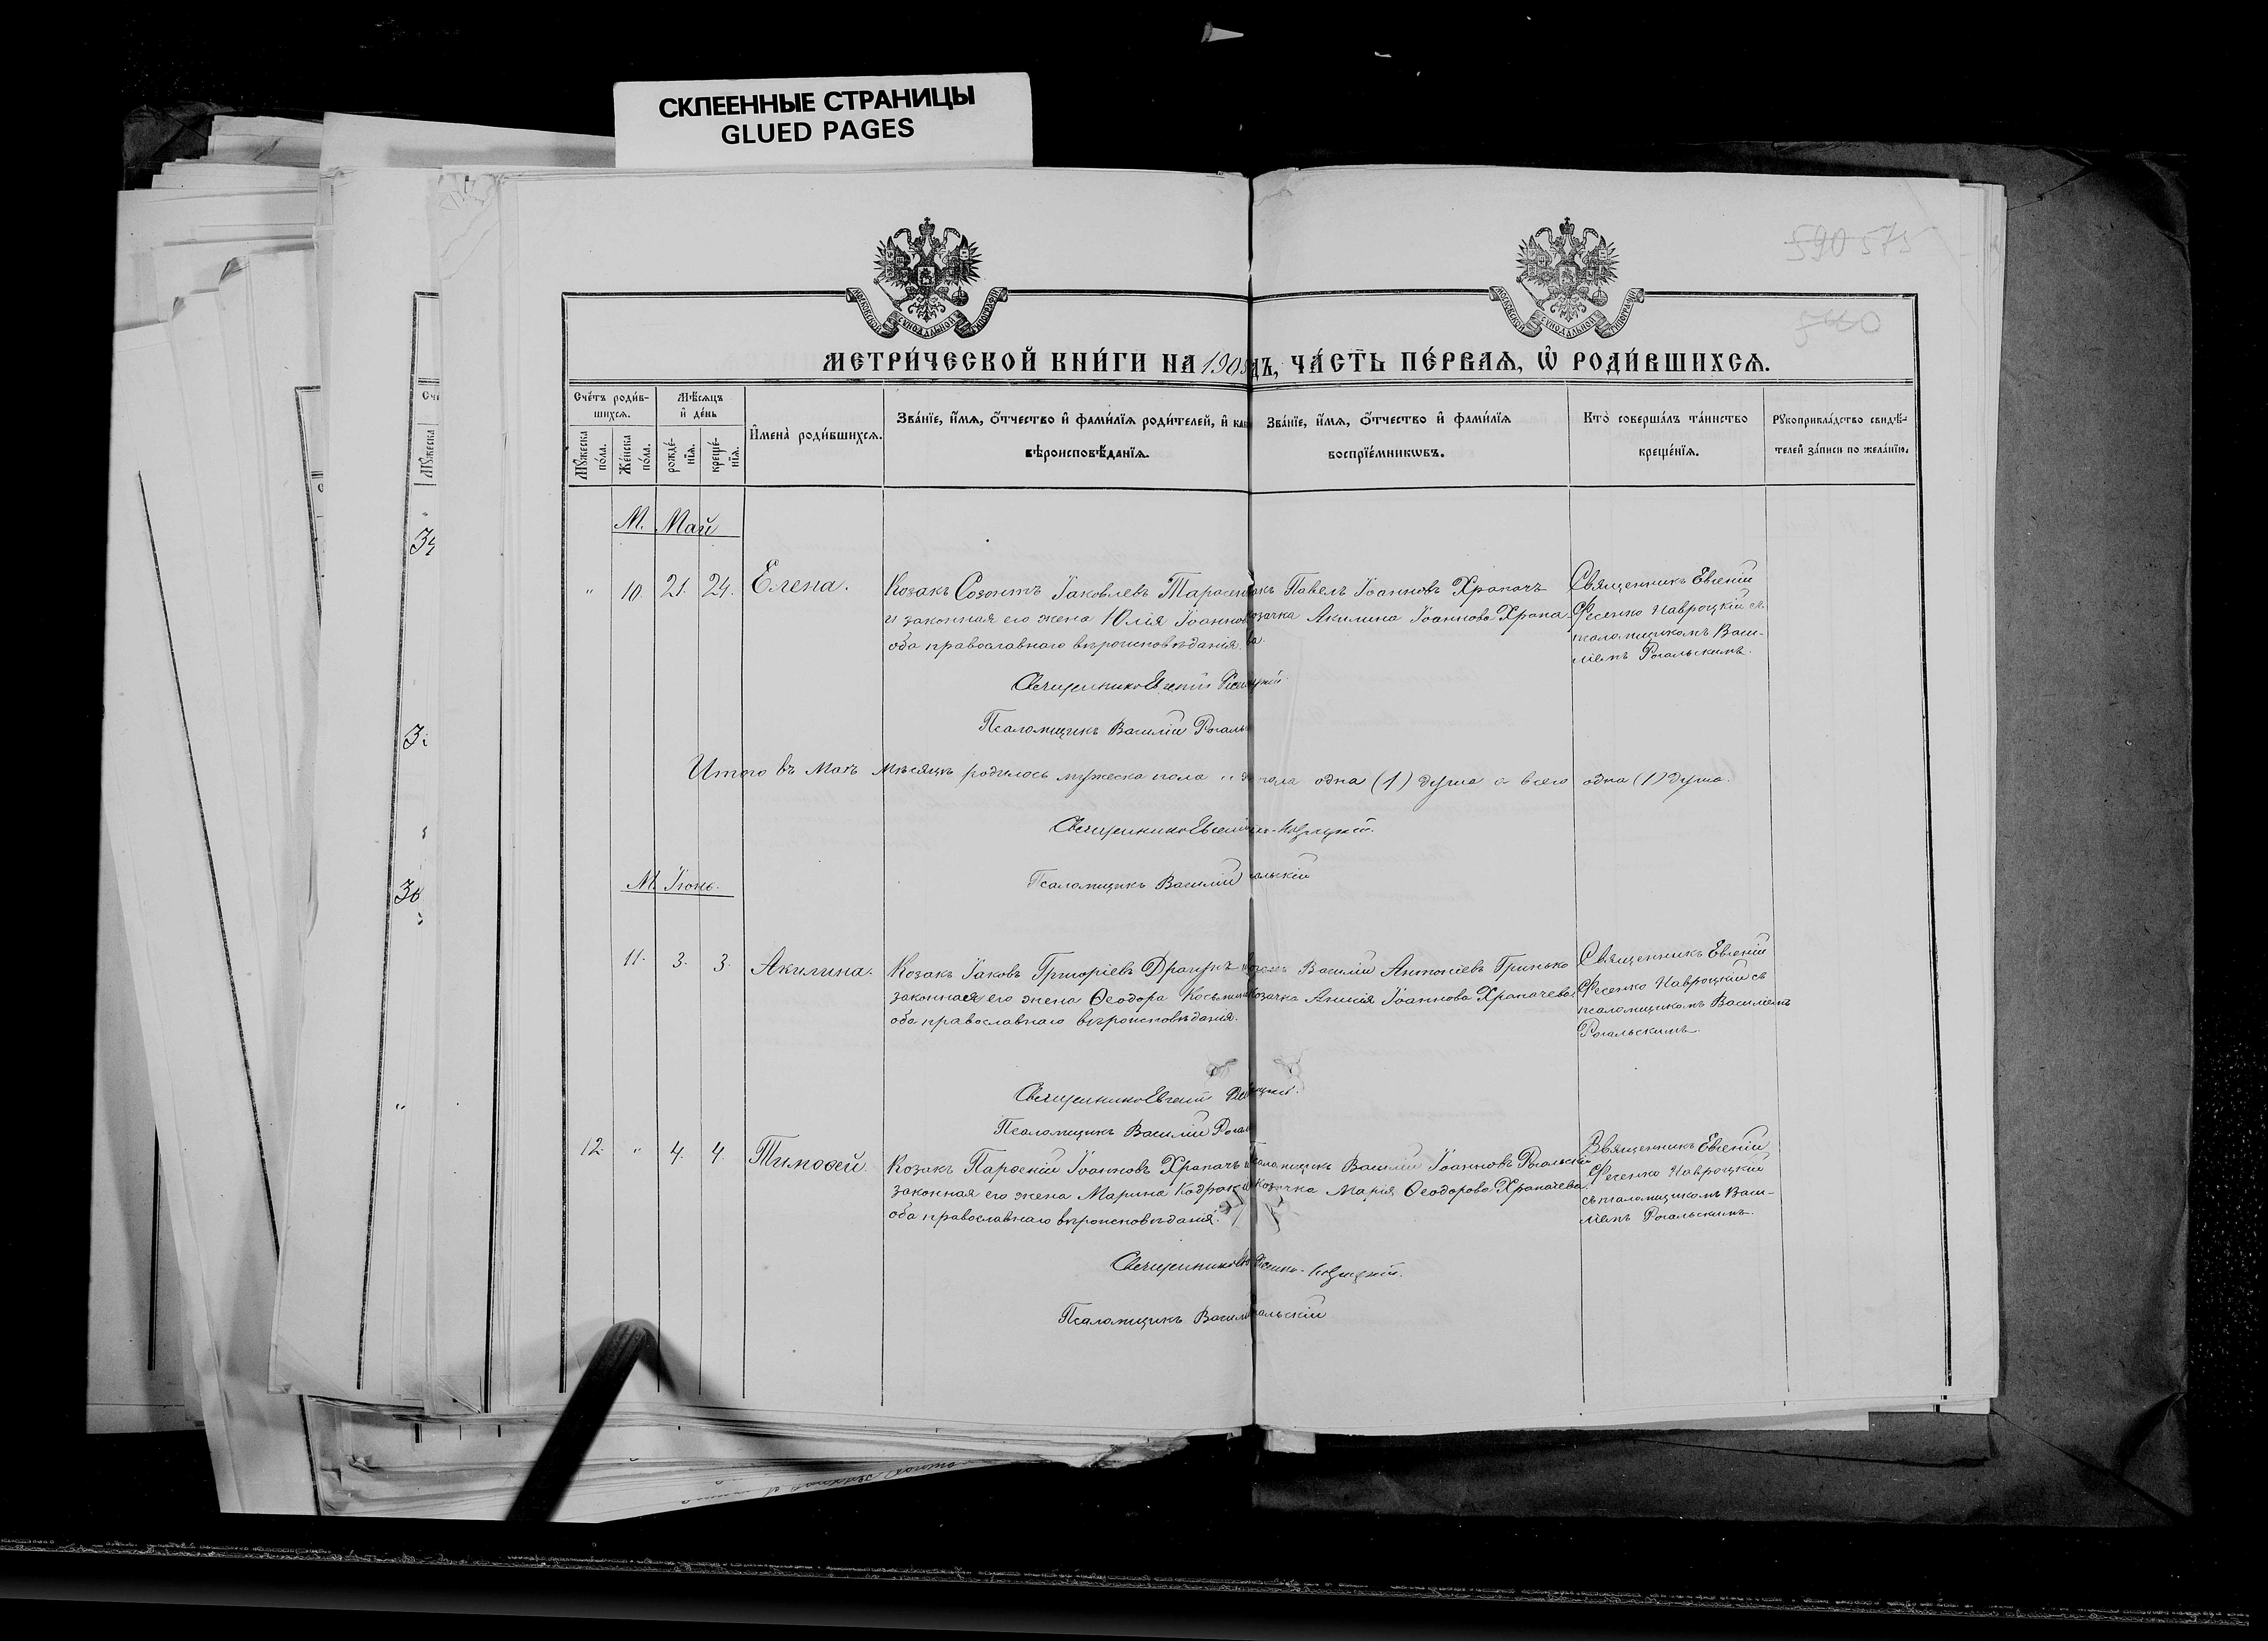 СКЛЕЕННЫЕ СТРАНИЦЫ
GLUED PAGES
590 575
МОСКОВСКОЙ СѴНОДАЛЬНОЙ ТИПОГРАФІИ
МОСКОВСКОЙ СѴНОДАЛЬНОЙ ТИПОГРАФІИ
МЕТРИ́ЧЕСКОЙ КНИ́ГИ НА 190 дъ, ЧА́СТЬ ПЕ́РВАѦ, Ѿ РОДИ́ВШИХСѦ.
Сче́тъ роди́в-
шихсѧ.
Мꙋ́жеска
по́ла.
Же́нска
по́ла.
Мѣ́сѧцъ
и҆ де́нь
рожде́-
нїѧ.
креще́-
нїѧ.
И҆мена̀ роди́вшихсѧ.
Зва́нїе, и҆́мѧ, ѻ҆́тчество и҆ фами́лїѧ роди́телей, и҆ как
вѣроисповѣ́данїѧ.
Зва́нїе, и҆́мѧ, ѻ҆́тчество и҆ фами́лїѧ
воспрїе́мникѡвъ.
Кто̀ соверша́лъ та́инство
креще́нїѧ.
Рꙋкоприкла́дство свидѣ́-
телей за́писи по жела́нїю.
М. Май
" 10. 21. 24. Елена. Козакъ Созонтъ Іаковлевъ Тарасен
и законная его жена Юлія Іоаннов
оба православнаго вѣроисповѣданія.
акъ Павелъ Іоанновъ Храпачъ
козачка Акилина Іоаннова Храпа
ва.
Священникъ Евгеній
Фесенко Навроцкій съ
псаломщикомъ Васи-
ліемъ Рогальскимъ.
Священникъ Евгеній Фесен цкій
Псаломщикъ Василій Рогаль
Итого въ Маѣ мѣсяцѣ родилось мужеска пола " ж пола одна (1) душа а всего одна (1) душа.
Священникъ Евгеній Навроцкій.
Псаломщикъ Василій гальскій
М. Іюнь.
11. 3. 3. Акилина. Козакъ Іаковъ Григоріевъ Драгунъ и
законная его жена Ѳеодора Косьмина
оба православнаго вѣроисповѣданія.
Василій Антоніевъ Гринько
Козачка Анисія Іоаннова Храпачева.
Священникъ Евгеній
Фесенко Навроцкій съ
псаломщикомъ Василіемъ
Рогальскимъ.
Священникъ Евгеній Фе цкій.
Псаломщикъ Василій Рогал
12. " 4. 4. Тимоѳей. Козакъ Парѳеній Іоанновъ Храпачъ и
законная его жена Марина Кодрат
оба православнаго вѣроисповѣданія.
псаломщикъ Василій Іоанновъ Рогальскій
Козачка Марія Ѳеодорова Храпачева.
Священникъ Евгеній
Фесенко Навроцкій
съ псаломщикомъ Васи-
ліемъ Рогальскимъ.
Священникъ Ев Фесенко-Навроцкій.
Псаломщикъ Васил гальскій